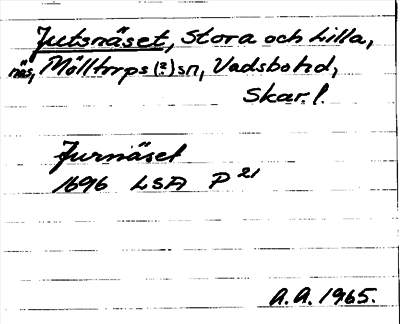 Jutsnäset, Stora och Lilla,
näs, Mölltorps (?) sn, Vadsbohd,
Skar. l.
Jurnäset
1696 LSA P 21
A.A. 1965.